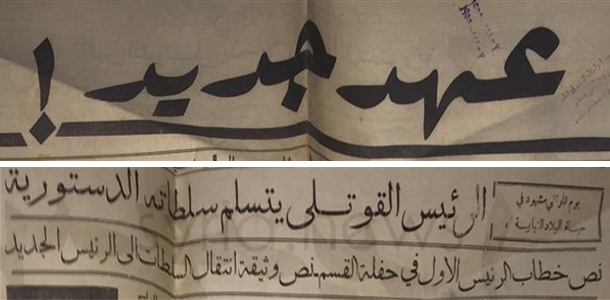 عهد جديد !
يوم تاريخي مشهود في
حياة البلاد النيابية
الرئيس القوتلي يتسلم سلطاته الدستورية
نص خطاب الرئيس الاول في حفلة القسم - نص وثيقة انتقال السلطات الى الرئيس الجديد